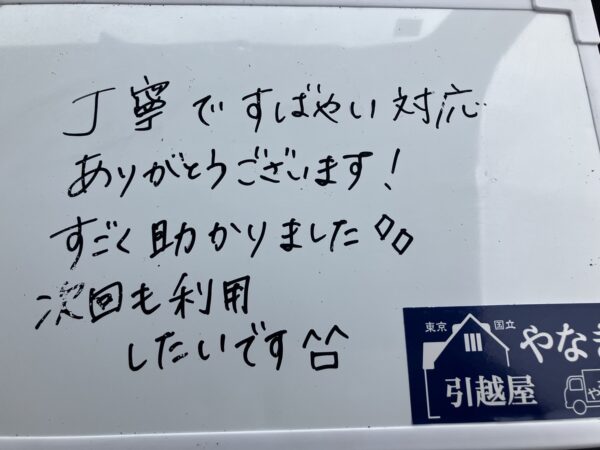 丁寧ですばやい対応
ありがとうございます!
すごく助かりました◇◇
次回も利用
したいです^□^
東京 国立
やなぎ
引越屋